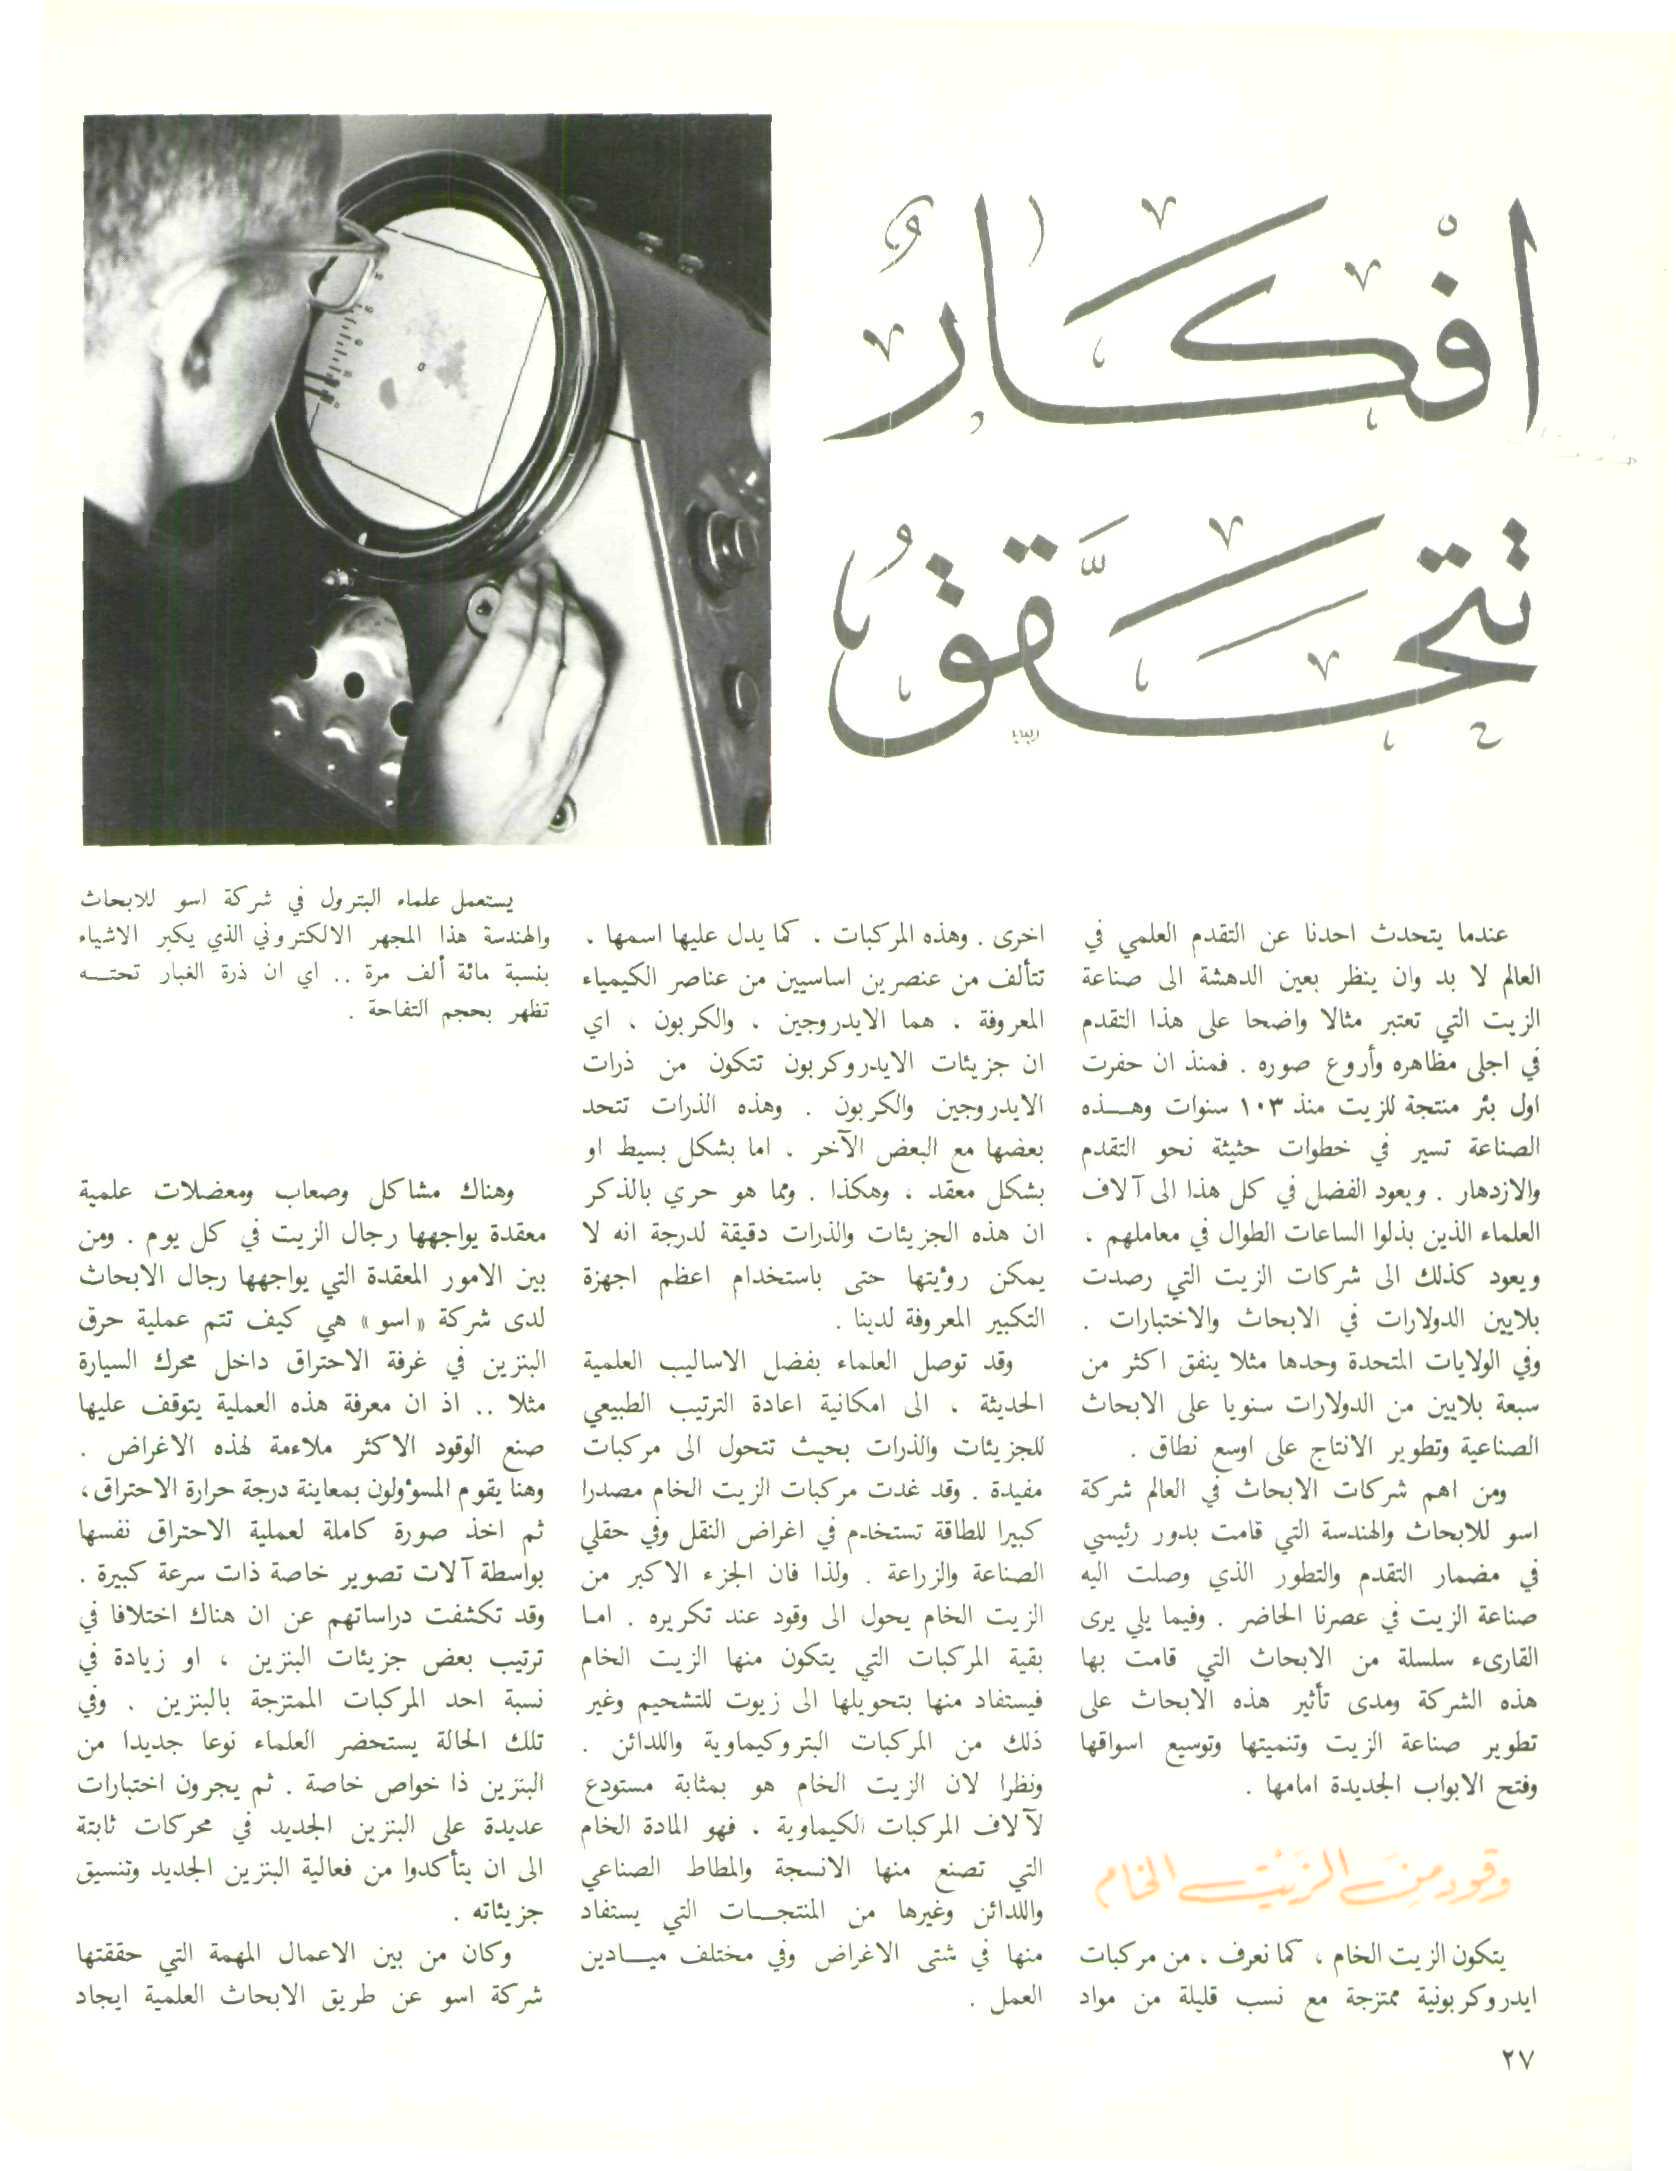 افكارٌ
تتحقّقُ
يستعمل علماء البترول في شركة اسو للابحاث
والهندسة هذا المجهر الالكتروني الذي يكبر الاشياء
بنسبة مائة ألف مرة .. اي ان ذرة الغبار تحتـــه
تظهر بحجم التفاحة .
عندما يتحدث احدنا عن التقدم العلمي في
العالم لا بد وان ينظر بعين الدهشة الى صناعة
الزيت التي تعتبر مثالا واضحا على هذا التقدم
في اجلى مظاهره وأروع صوره . فمنذ ان حفرت
اول بئر منتجة للزيت منذ ١٠٣ سنوات وهـــذه
الصناعة تسير في خطوات حثيثة نحو التقدم
والازدهار . ويعود الفضل في كل هذا الى آلاف
العلماء الذين بذلوا الساعات الطوال في معاملهم ،
ويعود كذلك الى شركات الزيت التي رصدت
بلايين الدولارات في الابحاث والاختبارات .
وفي الولايات المتحدة وحدها مثلا ينفق اكثر من
سبعة بلايين من الدولارات سنويا على الابحاث
الصناعية وتطوير الانتاج على اوسع نطاق .
ومن اهم شركات الابحاث في العالم شركة
اسو للابحاث والهندسة التي قامت بدور رئيسي
في مضمار التقدم والتطور الذي وصلت اليه
صناعة الزيت في عصرنا الحاضر . وفيما يلي يرى
القارىء سلسلة من الابحاث التي قامت بها
هذه الشركة ومدى تأثير هذه الابحاث على
تطوير صناعة الزيت وتنميتها وتوسيع اسواقها
وفتح الابواب الجديدة امامها .
وقود من الزيت الخام
يتكون الزيت الخام ، كما نعرف ، من مركبات
ايدروكربونية ممتزجة مع نسب قليلة من مواد
اخرى . وهذه المركبات ، كما يدل عليها اسمها ،
تتألف من عنصرين اساسيين من عناصر الكيمياء
المعروفة ، هما الايدروجين ، والكربون ، اي
ان جزيئات الايدروكربون تتكون من ذرات
الايدروجين والكربون . وهذه الذرات تتحد
بعضها مع البعض الآخر ، اما بشكل بسيط او
بشكل معقد ، وهكذا . ومما هو حري بالذكر
ان هذه الجزيئات والذرات دقيقة لدرجة انه لا
يمكن رؤيتها حتى باستخدام اعظم اجهزة
التكبير المعروفة لدينا .
وقد توصل العلماء بفضل الاساليب العلمية
الحديثة ، الى امكانية اعادة الترتيب الطبيعي
للجزيئات والذرات بحيث تتحول الى مركبات
مفيدة . وقد غدت مركبات الزيت الخام مصدرا
كبيرا للطاقة تستخدم في اغراض النقل وفي حقلي
الصناعة والزراعة . ولذا فان الجزء الاكبر من
الزيت الخام يحول الى وقود عند تكريره . امـا
بقية المركبات التي يتكون منها الزيت الخام
فيستفاد منها بتحويلها الى زيوت للتشحيم وغير
ذلك من المركبات البتروكيماوية واللدائن .
ونظرا لان الزيت الخام هو بمثابة مستودع
لآلاف المركبات الكيماوية ، فهو المادة الخام
التي تصنع منها الانسجة والمطاط الصناعي
واللدائن وغيرها من المنتجـــات التي يستفاد
منها في شتى الاغراض وفي مختلف ميـــادين
العمل .
وهناك مشاكل وصعاب ومعضلات علمية
معقدة يواجهها رجال الزيت في كل يوم . ومن
بين الامور المعقدة التي يواجهها رجال الابحاث
لدى شركة «اسو» هي كيف تتم عملية حرق
البنزين في غرفة الاحتراق داخل محرك السيارة
مثلا .. اذ ان معرفة هذه العملية يتوقف عليها
صنع الوقود الاكثر ملاءمة لهذه الاغراض .
وهنا يقوم المسؤولون بمعاينة درجة حرارة الاحتراق،
ثم اخذ صورة كاملة لعملية الاحتراق نفسها
بواسطة آلات تصوير خاصة ذات سرعة كبيرة .
وقد تكشفت دراساتهم عن ان هناك اختلافا في
ترتيب بعض جزيئات البنزين ، او زيادة في
نسبة احد المركبات الممتزجة بالبنزين . وفي
تلك الحالة يستحضر العلماء نوعا جديدا من
البنزين ذا خواص خاصة . ثم يجرون اختبارات
عديدة على البنزين الجديد في محركات ثابتة
الى ان يتأكدوا من فعالية البنزين الجديد وتنسيق
جزيئاته .
وكان من بين الاعمال المهمة التي حققتها
شركة اسو عن طريق الابحاث العلمية ايجاد
٢٧